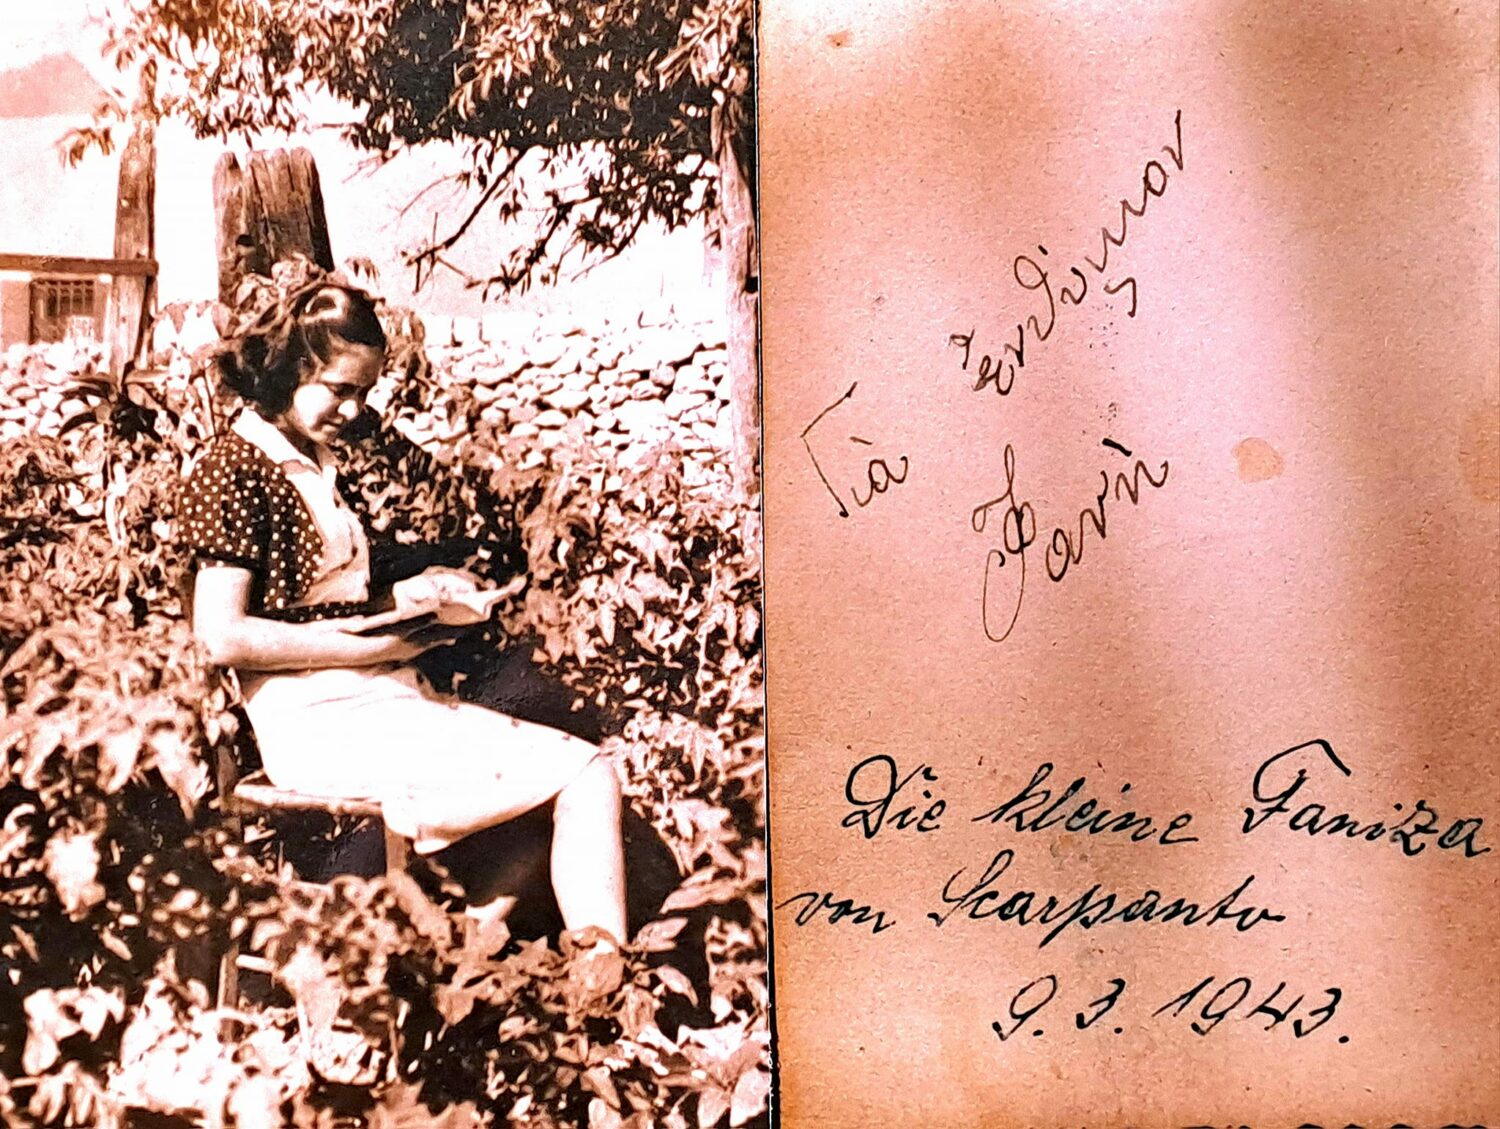 Γιὰ ἐνθύμιον
Φανὴ
Die kleine Faniza
von Scarpanto
9. 3. 1943.